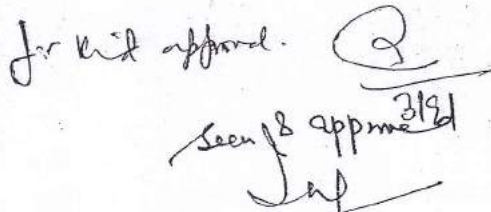 for kind approval.
3/9
seen & approved